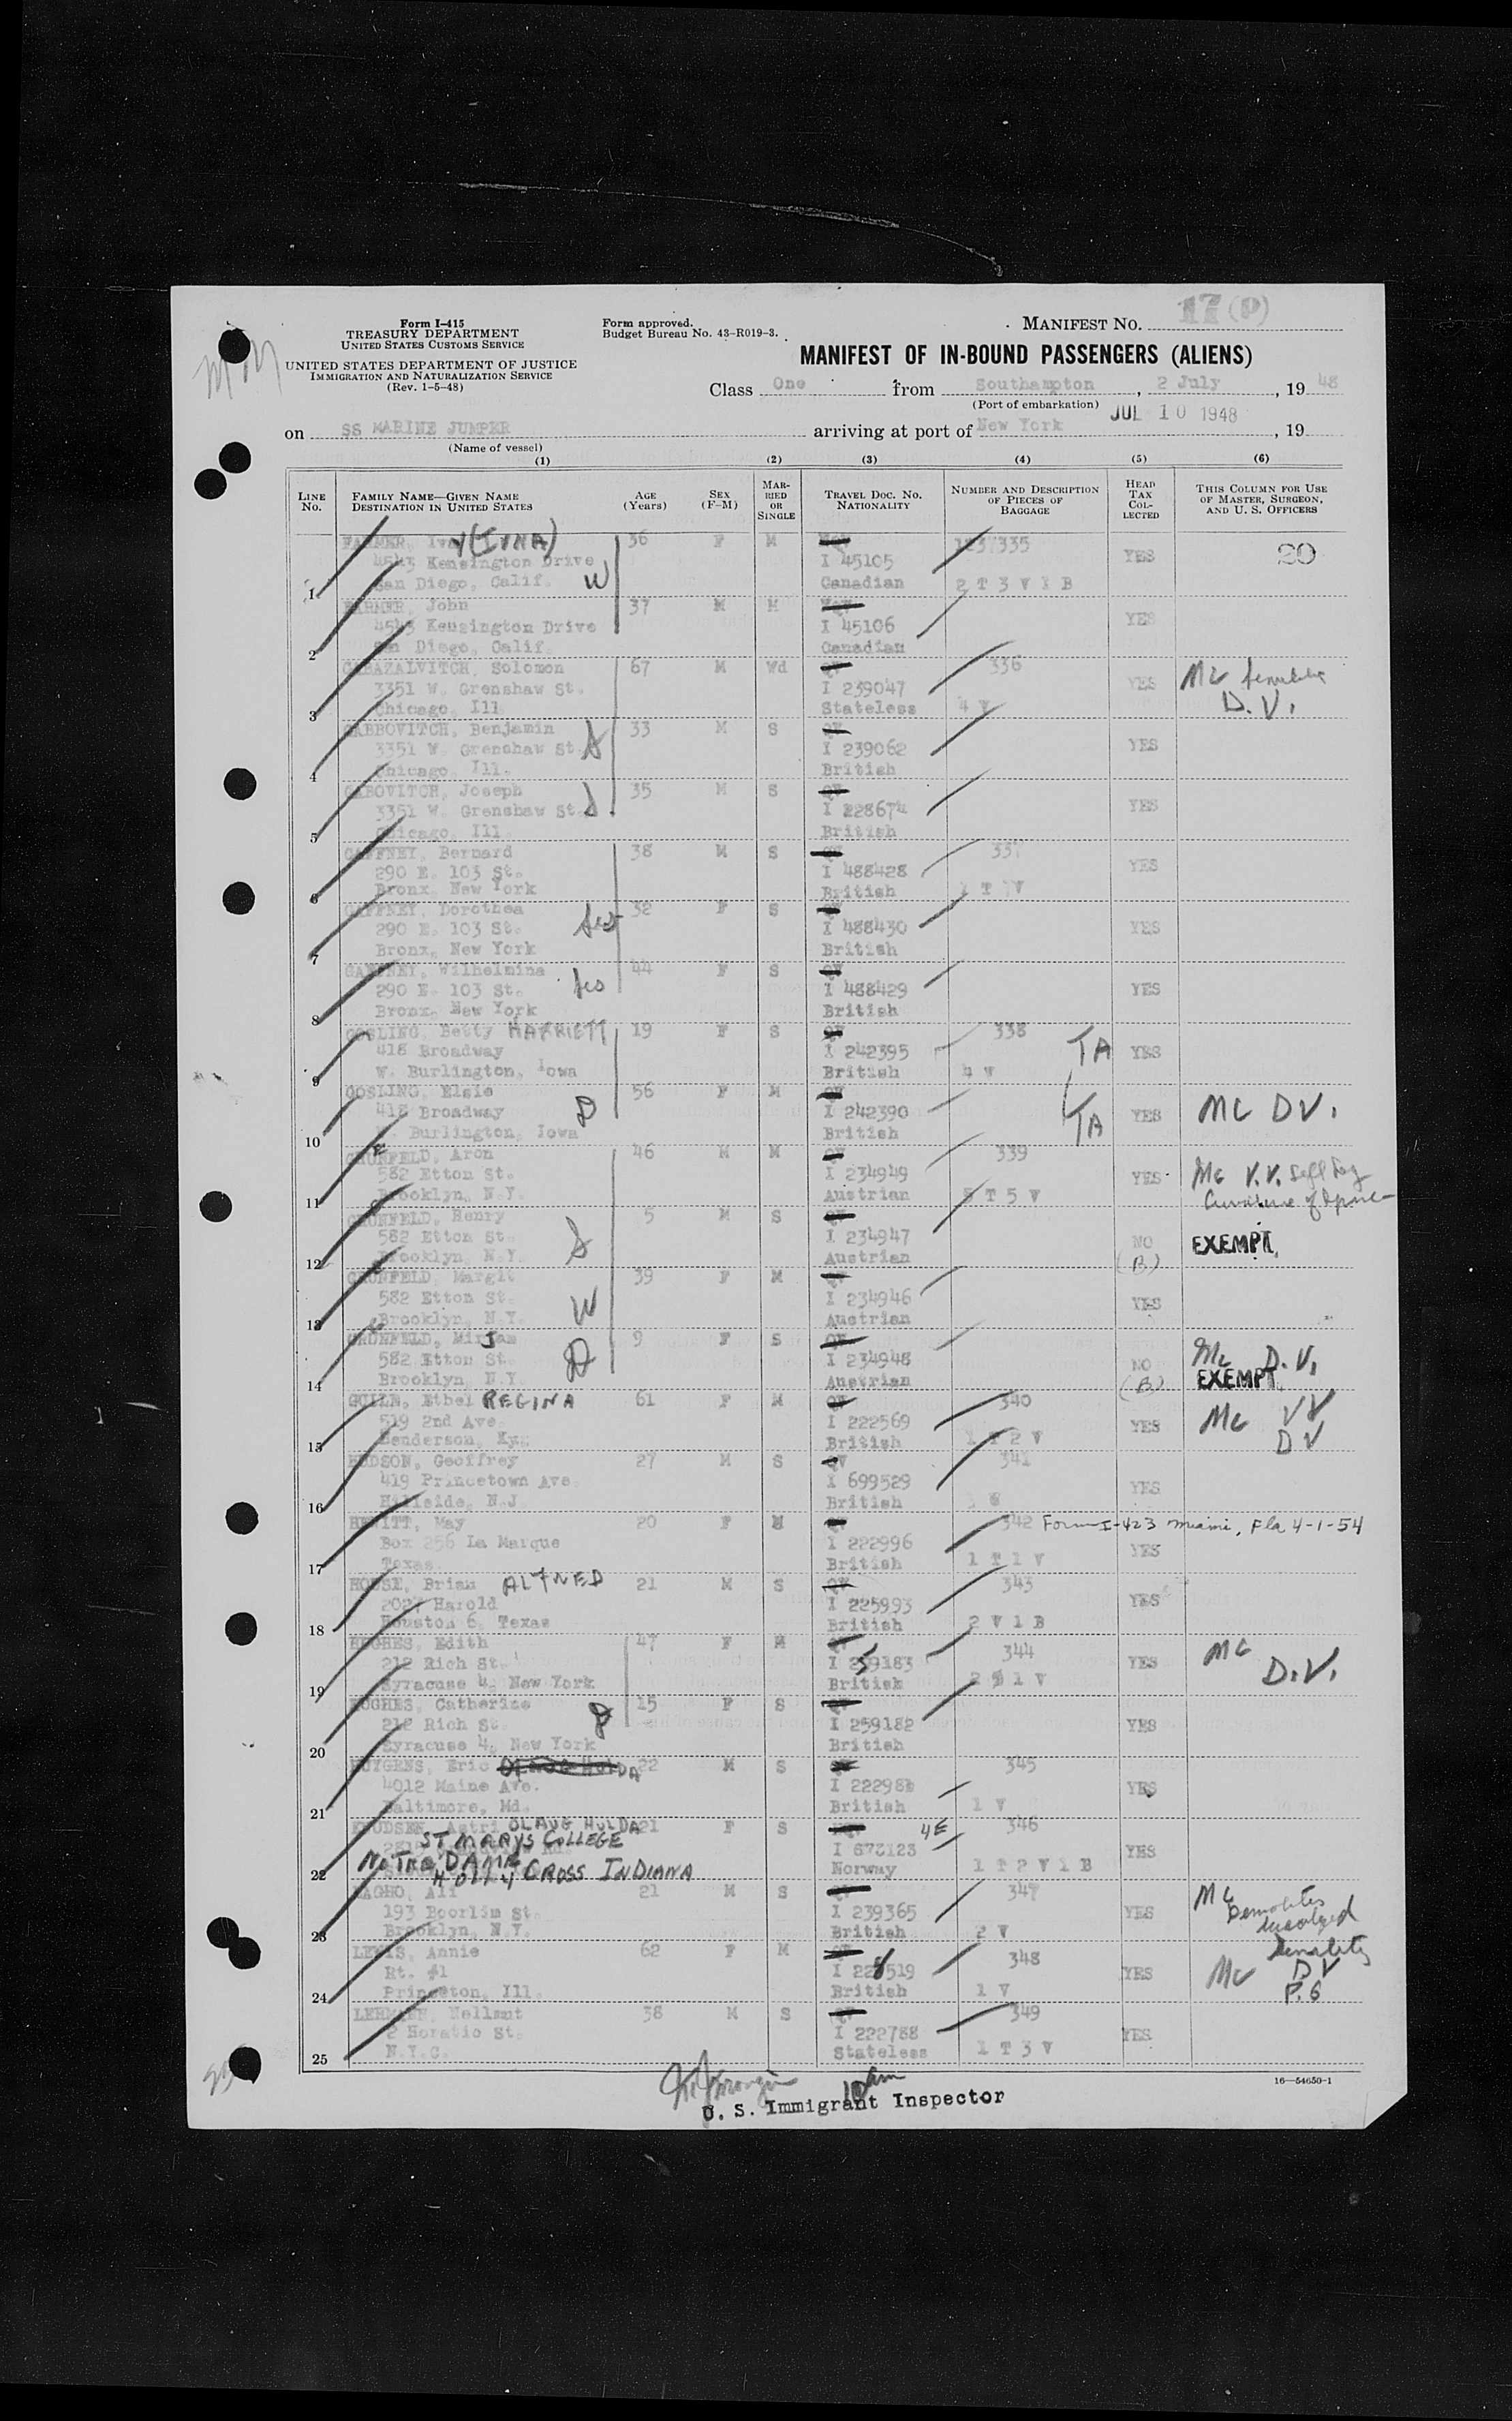 17 (P)
Form I-415
TREASURY DEPARTMENT
UNITED STATES CUSTOMS SERVICE
UNITED STATES DEPARTMENT OF JUSTICE
IMMIGRATION AND NATURALIZATION SERVICE
(Rev. 1-5-48)
Form approved.
Budget Bureau No. 43-R019-3.
MANIFEST NO.
MANIFEST OF IN-BOUND PASSENGERS (ALIENS)
Class One from Southampton, 2 July, 1948
(Port of embarkation) JUL 10 1948
on SS MARINE JUMPER arriving at port of New York, 19
(Name of vessel)
(1) (2) (3) (4) (5) (6)
LINE No. FAMILY NAME—GIVEN NAME DESTINATION IN UNITED STATES AGE (Years) SEX (F-M) MARRIED OR SINGLE TRAVEL DOC. NO. NATIONALITY NUMBER AND DESCRIPTION OF PIECES OF BAGGAGE HEAD TAX COLLECTED THIS COLUMN FOR USE OF MASTER, SURGEON, AND U. S. OFFICERS
FARMER, Iva (IVNA) 36 F M 335 YES 20
4543 Kensington Drive I 45105
1 San Diego, Calif. W Canadian 2 T 3 V 1 B
FARMER, John 37 M M YES
4543 Kensington Drive I 45106
2 San Diego, Calif. Canadian
GABAZALVITCH, Solomon 67 M Wd 336 YES Mc
3351 W. Grenshaw St. I 239047 D.V.
3 Chicago, Ill Stateless 4 V
GABBOVITCH, Benjamin 33 M S YES
3351 W. Grenshaw St. I 239062
4 Chicago, Ill. British
GABOVITCH, Joseph 35 M S YES
3351 W. Grenshaw St. I 228674
5 Chicago, Ill. British
GAFFNEY, Bernard 38 M S 337 YES
290 E. 103 St. I 488428
6 Bronx, New York British
GAFFNEY, Dorothea 32 F S YES
290 E. 103 St. I 488430
7 Bronx, New York British
GAFFNEY, Wilhelmina 44 F S YES
290 E. 103 St. I 488429
8 Bronx, New York British
GOSLING, Betty HARRIETT 19 F S 338 TA YES
418 Broadway I 242395
9 W. Burlington, Iowa British 4 V
GOSLING, Elsie 56 F M TA YES Mc DV.
418 Broadway I 242390
10 W. Burlington, Iowa British
GRUNFELD, Aron 46 M M 339 YES Mc V.V. Left Leg
582 Etton St. I 234949 Curvature of Spine
11 Brooklyn, N.Y. Austrian 5 T 5 V
GRUNFELD, Henry 5 M S NO EXEMPT.
582 Etton St. I 234947 (B)
12 Brooklyn, N.Y. Austrian
GRUNFELD, Margit 39 F M YES
582 Etton St. W I 234946
13 Brooklyn, N.Y. Austrian
GRUNFELD, Mirjam 9 F S NO Mc D.V.
582 Etton St. D I 234948 (B) EXEMPT.
14 Brooklyn, N.Y. Austrian
Ethel REGINA 61 F M 340 YES Mc VV
519 2nd Ave. I 222569 DV
15 Henderson, Ky. British 1 T 2 V
HUDSON, Geoffrey 27 M S 341 YES
419 Princetown Ave. I 699529
16 Hillside, N.J. British
HEWITT, May 20 F M 342 Form I-423 Miami, Fla 4-1-54
Box 256 La Marque I 222996 YES
17 Texas British 1 T 1 V
HOUSE, Brian 21 M S 343 YES
2027 Harold I 225993
18 Houston 6, Texas British 2 V 1 B
HUGHES, Edith 47 F M 344 YES Mc
212 Rich St. I 259183 D.V.
19 Syracuse 4, New York British
HUGHES, Catherine 15 F S YES
212 Rich St. I 259182
20 Syracuse 4, New York British
HUYGENS, Eric 22 M S 345 YES
4012 Maine Ave. I 22298
21 Baltimore, Md. British 1 V
KNUDSEN, Astri OLAUG HULDA 21 F S 4E 346 YES
ST MARYS COLLEGE I 673123
22 NOTRE DAME HOLLY CROSS INDIANA Norway 1 T 2 V 1 B
Ali 21 M S 347 YES Mc
193 St. I 239365
23 Brooklyn, N.Y. British 2 V
LEWIS, Annie 62 F M 348 YES Mc DV
Rt. #1 I 228519 P.6
24 Princeton, Ill. British 1 V
LEHMANN, 38 M S 349 YES
2 Horatio St. I 222788
25 N.Y.C. Stateless 1 T 3 V
16—54650-1
U. S. Immigrant Inspector